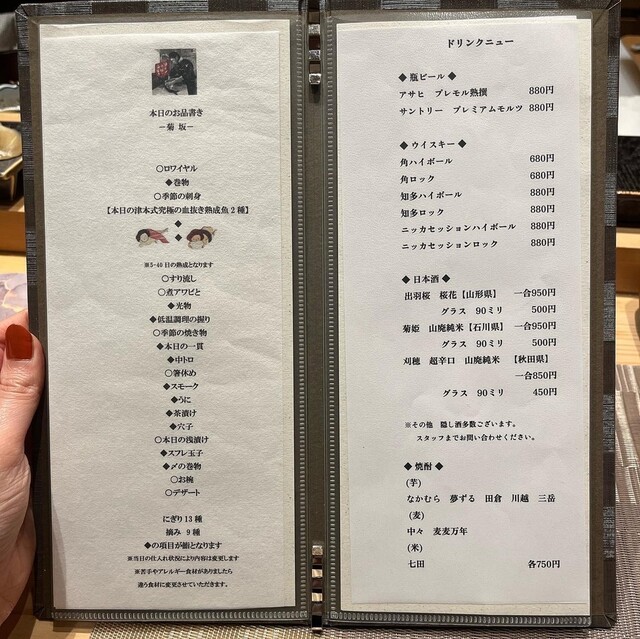 本日のお品書き
－菊 坂－
〇ロワイヤル
◆巻物
〇季節の刺身
【本日の津本式究極の血抜き熟成魚2種】
◆
◆
※5-40日の熟成となります
〇すり流し
〇煮アワビと
◆光物
◆低温調理の握り
〇季節の焼き物
◆本日の一貫
◆中トロ
〇箸休め
◆スモーク
◆うに
◆茶漬け
◆穴子
〇本日の浅漬け
◆スフレ玉子
◆〆の巻物
〇お椀
〇デザート
にぎり13種
摘み 9種
◆の項目が鮨となります
※当日の仕入れ状況により内容は変更します
※苦手やアレルギー食材がありましたら
違う食材に変更させていただきます。
ドリンクニュー
◆ 瓶ビール ◆
アサヒ プレモル熟撰 880円
サントリー プレミアムモルツ 880円
◆ ウイスキー ◆
角ハイボール 680円
角ロック 680円
知多ハイボール 880円
知多ロック 880円
ニッカセッションハイボール 880円
ニッカセッションロック 880円
◆ 日本酒 ◆
出羽桜 桜花【山形県】 一合950円
グラス 90ミリ 500円
菊姫 山廃純米【石川県】 一合950円
グラス 90ミリ 500円
刈穂 超辛口 山廃純米 【秋田県】
一合850円
グラス 90ミリ 450円
※その他 隠し酒多数ございます。
スタッフまでお問い合わせください。
◆ 焼酎 ◆
(芋)
なかむら 夢ずる 田倉 川越 三岳
(麦)
中々 麦麦万年
(米)
七田 各750円